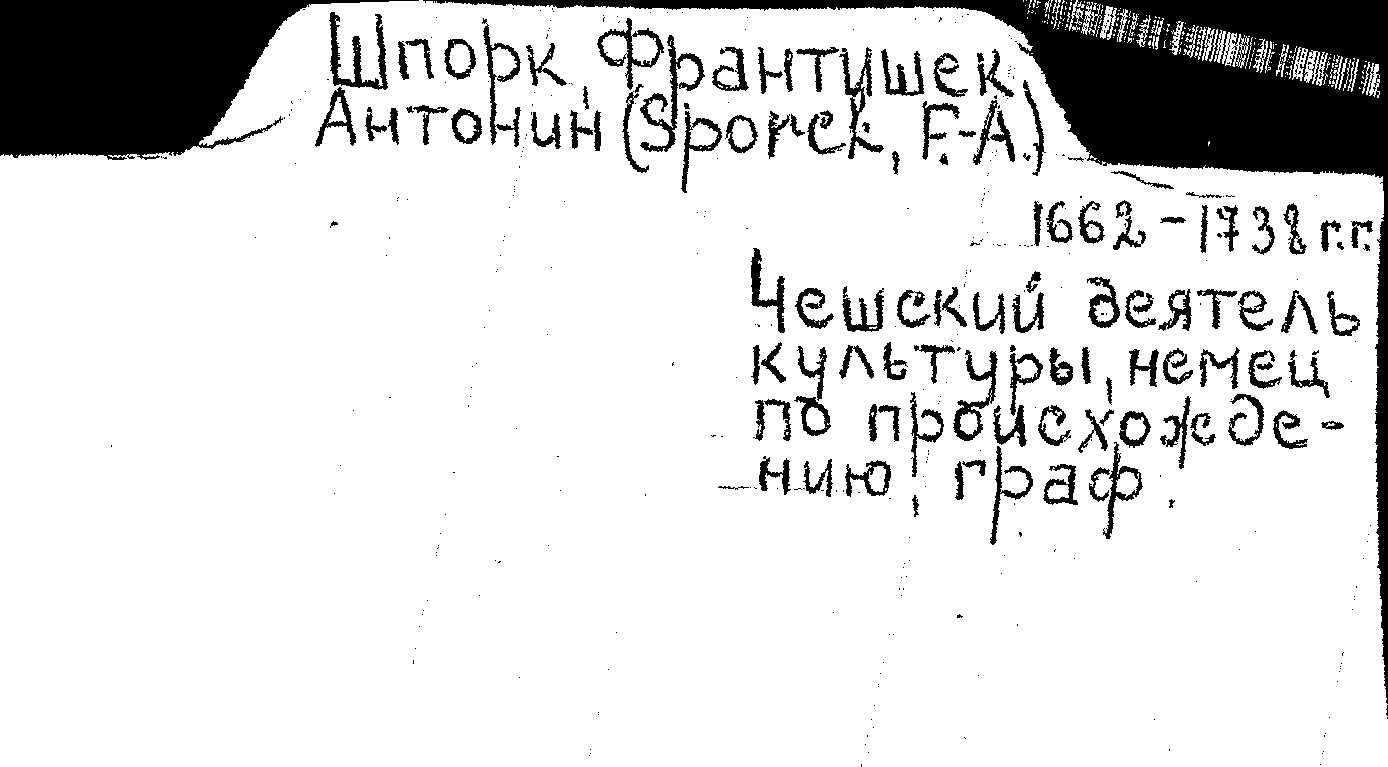 Шпорк, Франтишек
Антонин (Sporck, F.-A.)
1662 - 1738 г.г.
Чешский деятель
культуры, немец
по происхожде-
нию, граф.